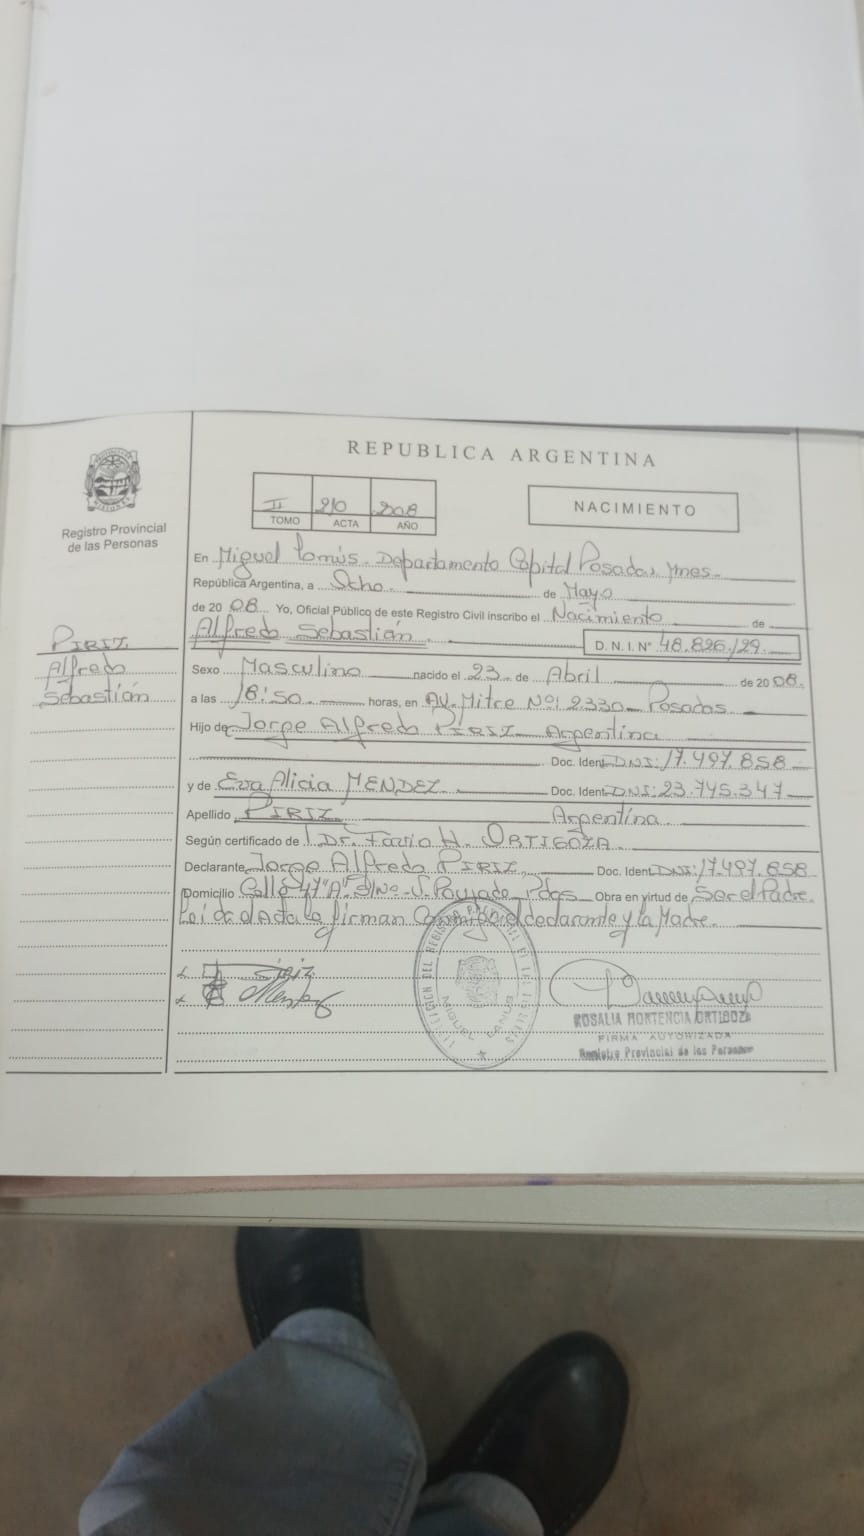 REPUBLICA ARGENTINA
Registro Provincial
de las Personas
II 210 2008
TOMO ACTA AÑO
NACIMIENTO
En Miguel Lanús. Departamento Capital Posadas, Mnes.
República Argentina, a Ocho de Mayo
de 20 08 Yo, Oficial Público de este Registro Civil inscribo el Nacimiento de
Alfredo Sebastián D. N. I. N° 48.826.129
PIRIZ
Alfredo
Sebastián
Sexo Masculino nacido el 23 de Abril de 20 08
a las 18:50 horas, en AV. Mitre Nº: 2330 Posadas
Hijo de Jorge Alfredo PIRIZ Argentina
Doc. Ident. DNI: 17.497.858
y de Eva Alicia MENDEZ Doc. Ident. DNI: 23.745.347
Apellido PIRIZ Argentina
Según certificado de Dr. H. ORTIGOZA
Declarante Jorge Alfredo PIRIZ Doc. Ident. DNI: 17.497.858
Domicilio Calle 47 "A" S/Nº Pdas Obra en virtud de Ser el Padre.
Leída el Acta la firman Conmigo el declarante y la Madre.
Piriz
MIGUEL LANUS
ROSALIA HORTENCIA ORTIGOZA
FIRMA AUTORIZADA
Registro Provincial de las Personas